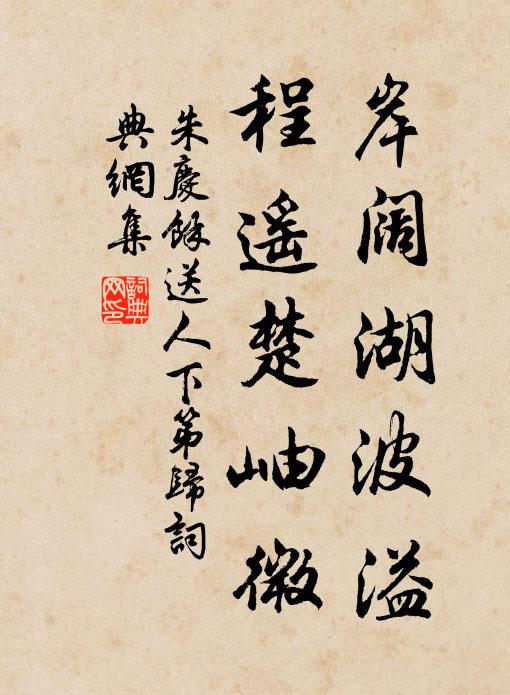 岸闊湖波溢
程遥楚岫微
朱慶餘送人下第歸詞
典網集
詞典網印